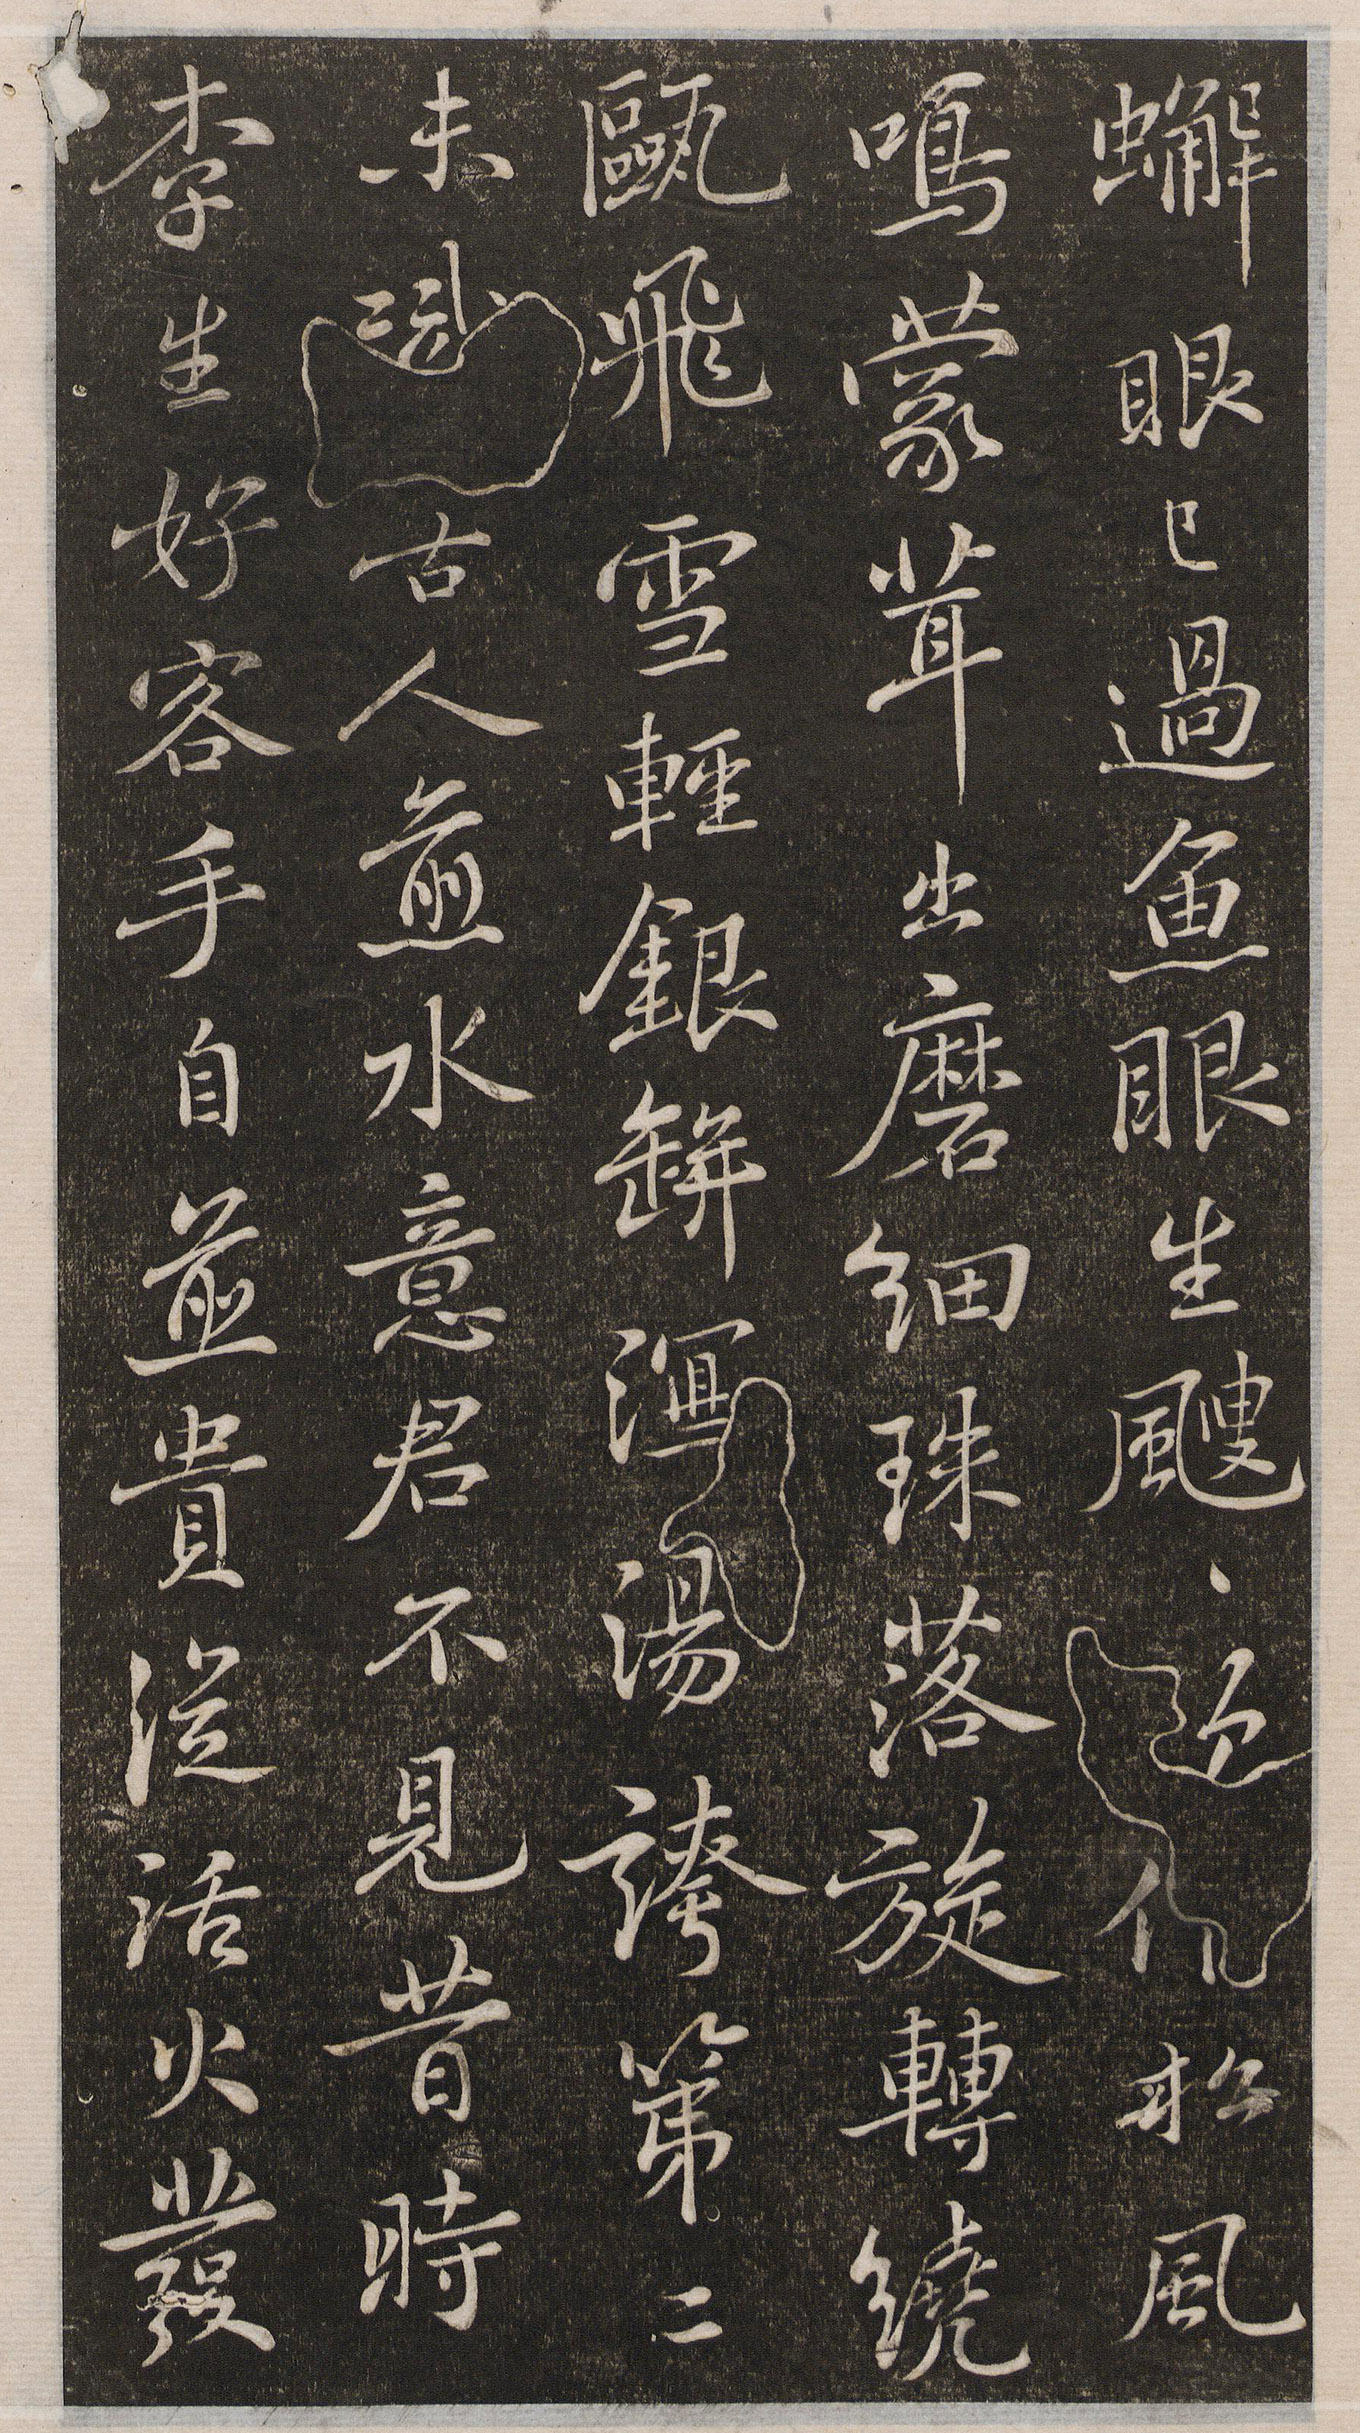 蠏眼已過魚眼生颼、松風
鳴蒙茸出磨細珠落旋轉繞
甌飛雪輕銀缾瀉湯誇第二
未古人煎水意君不見昔時
李生好客手自煎貴從活火發